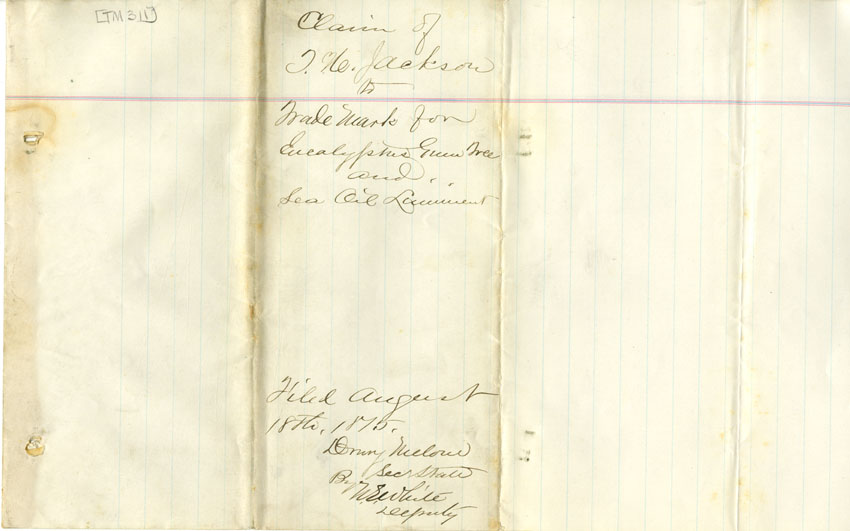 [TM 311]
Claim of
T. H. Jackson
to
Trade Mark for
Eucalyptus Gum Tree
and
Sea Oil Liniment
Filed August
18th, 1875.
Drury Melone
Sec State
By
White
Deputy